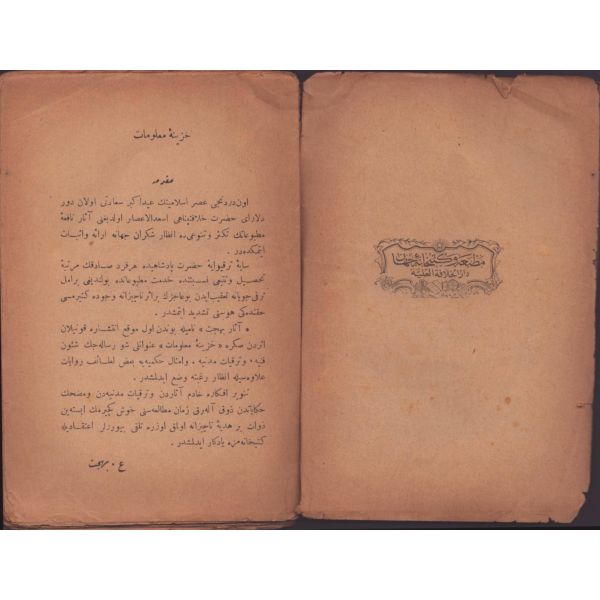 خزينۀ معلومات
مقدمه
اون دردنجی عصر اسلامينك عيد اكبر سعادتی اولان دور
دلارای حضرت خلافتپناهی اسعدالاعصار اولديغنی آثار نافعۀ
مطبوعاتك تكثر وتنوعی ده انظار شكران جهانه ارائه واثبات
ايتمكده در.
سايۀ ترقيوايۀ حضرت پادشاهيده هرفرد صادقك مرتبۀ
تحصيل وتتبعی نسبتنده خدمت مطبوعاتده بولنديغی برامل
ترقی جويانه تعقيب ايدن بوعاجزك براثر ناچيزانه وجوده كتيرمسی
حقنده كی هوسنی تشديد ايتمشدر.
« آثار بهجت » ناميله بوندن اول موقع انتشاره قونيلان
اثردن صكره « خزينۀ معلومات » عنوانلی شو رساله جك شئون
فنيه، وترقيات مدنيه، وامثال حكميه يه بعض لطائف روايات
علاوه سيله انظار رغبته وضع ايدلمشدر.
تنوير افكاره خادم آثاردن وترقيات مدنيه دن ومضحك
حكاياتدن ذوق آله رق زمان مطالعه سنی خوش كچيرمك ايسته ين
ذوات بر هديۀ ناچيزانه اولمق اوزره تلقی بيوررلر اعتقاديله
كتبخانه مزه يادكار ايدلمشدر.
ع. بهجت
مطبعه وكتبخانۀ جهان
دار الخلافة العلية